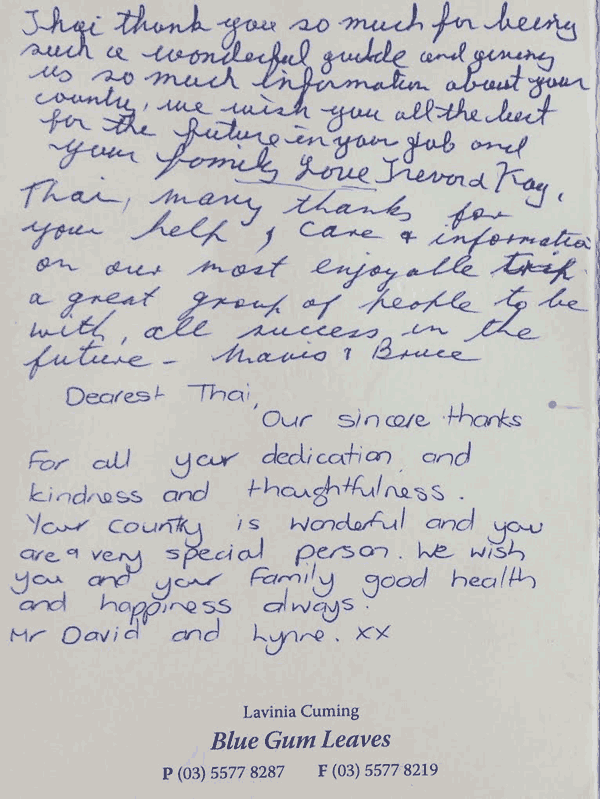 Thai thank you so much for being
such a wonderful guide and giving
us so much information about your
country, we wish you all the best
for the future in your job and
your family Love Trevor & Kay.
Thai, many thanks for
your help, care & information
on our most enjoyable trip
a great group of people to be
with, all success in the
future - Mavis & Bruce
Dearest Thai,
Our sincere thanks
For all your dedication and
kindness and thoughtfulness.
Your country is wonderful and you
are a very special person. We wish
you and your family good health
and happiness always.
Mr David and Lynne. xx
Lavinia Cuming
Blue Gum Leaves
P (03) 5577 8287 F (03) 5577 8219